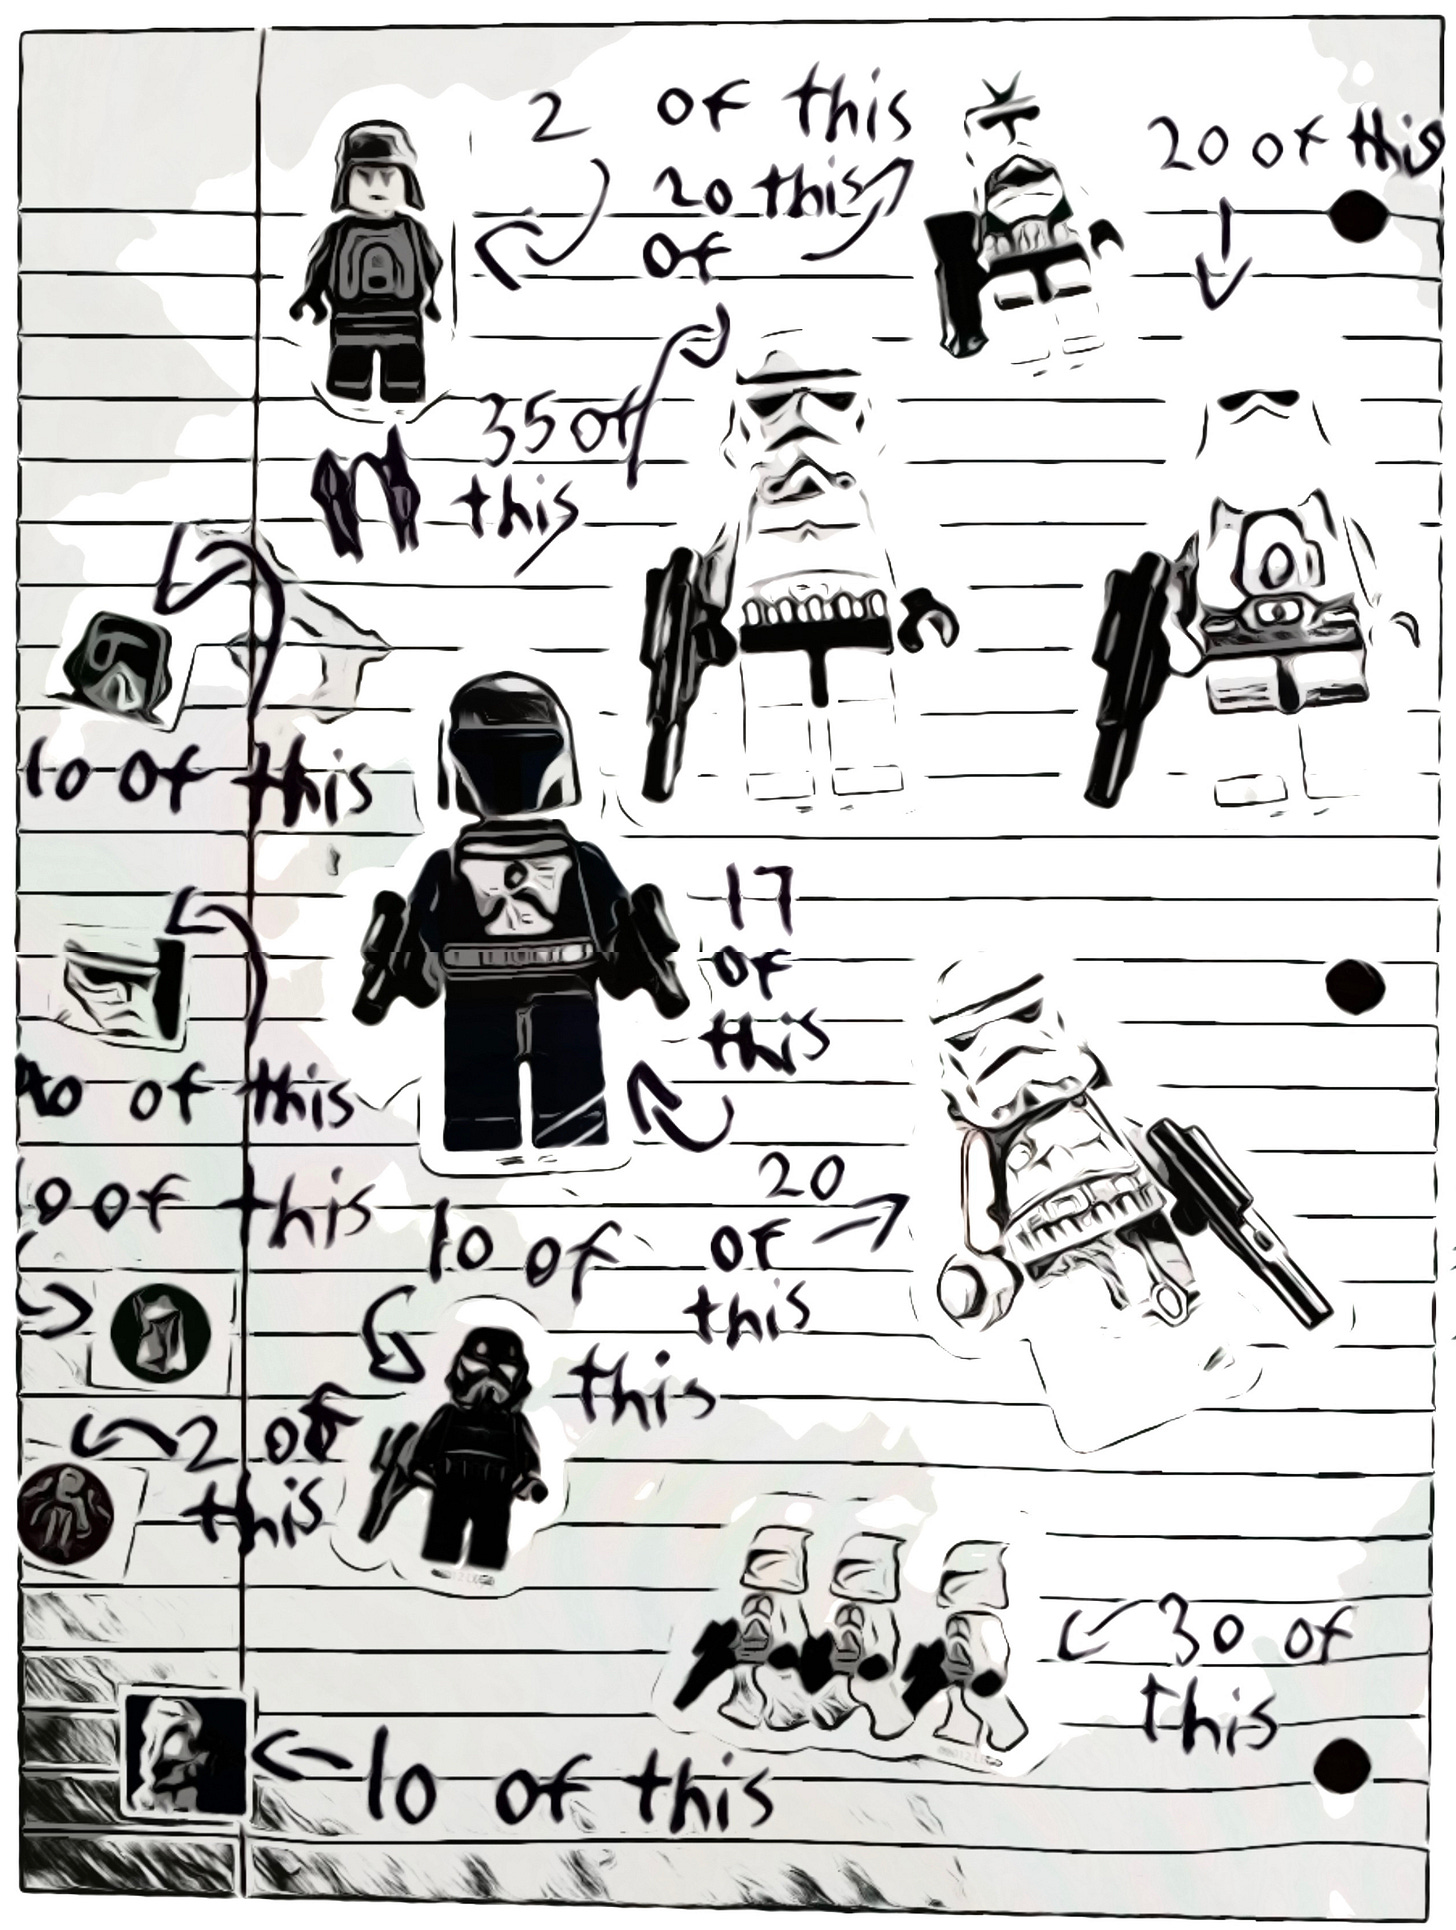 2 of this
20 this
of
20 of this
35 of
this
10 of this
17
of
this
40 of this
0 of this
10 of
this
20
of
this
2 of
this
30 of
this
10 of this